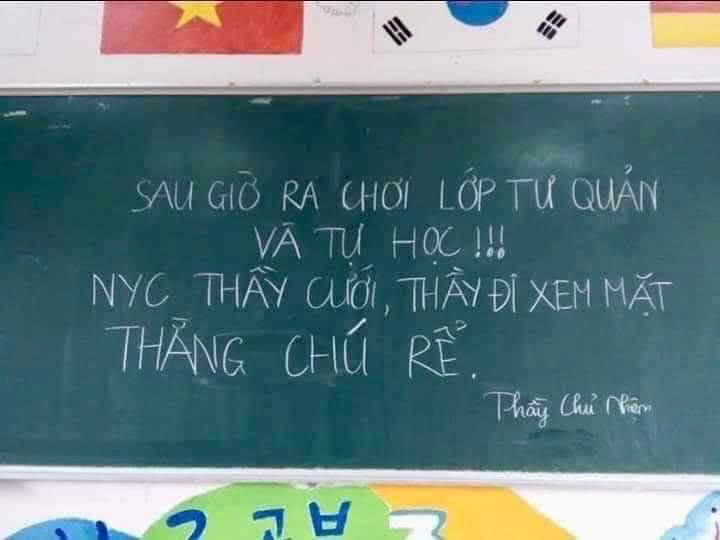 SAU GIỜ RA CHƠI LỚP TỰ QUẢN
VÀ TỰ HỌC!!!
NYC THẦY CƯỚI, THẦY ĐI XEM MẶT
THẰNG CHÚ RỂ.
Thầy Chủ Nhiệm
공부